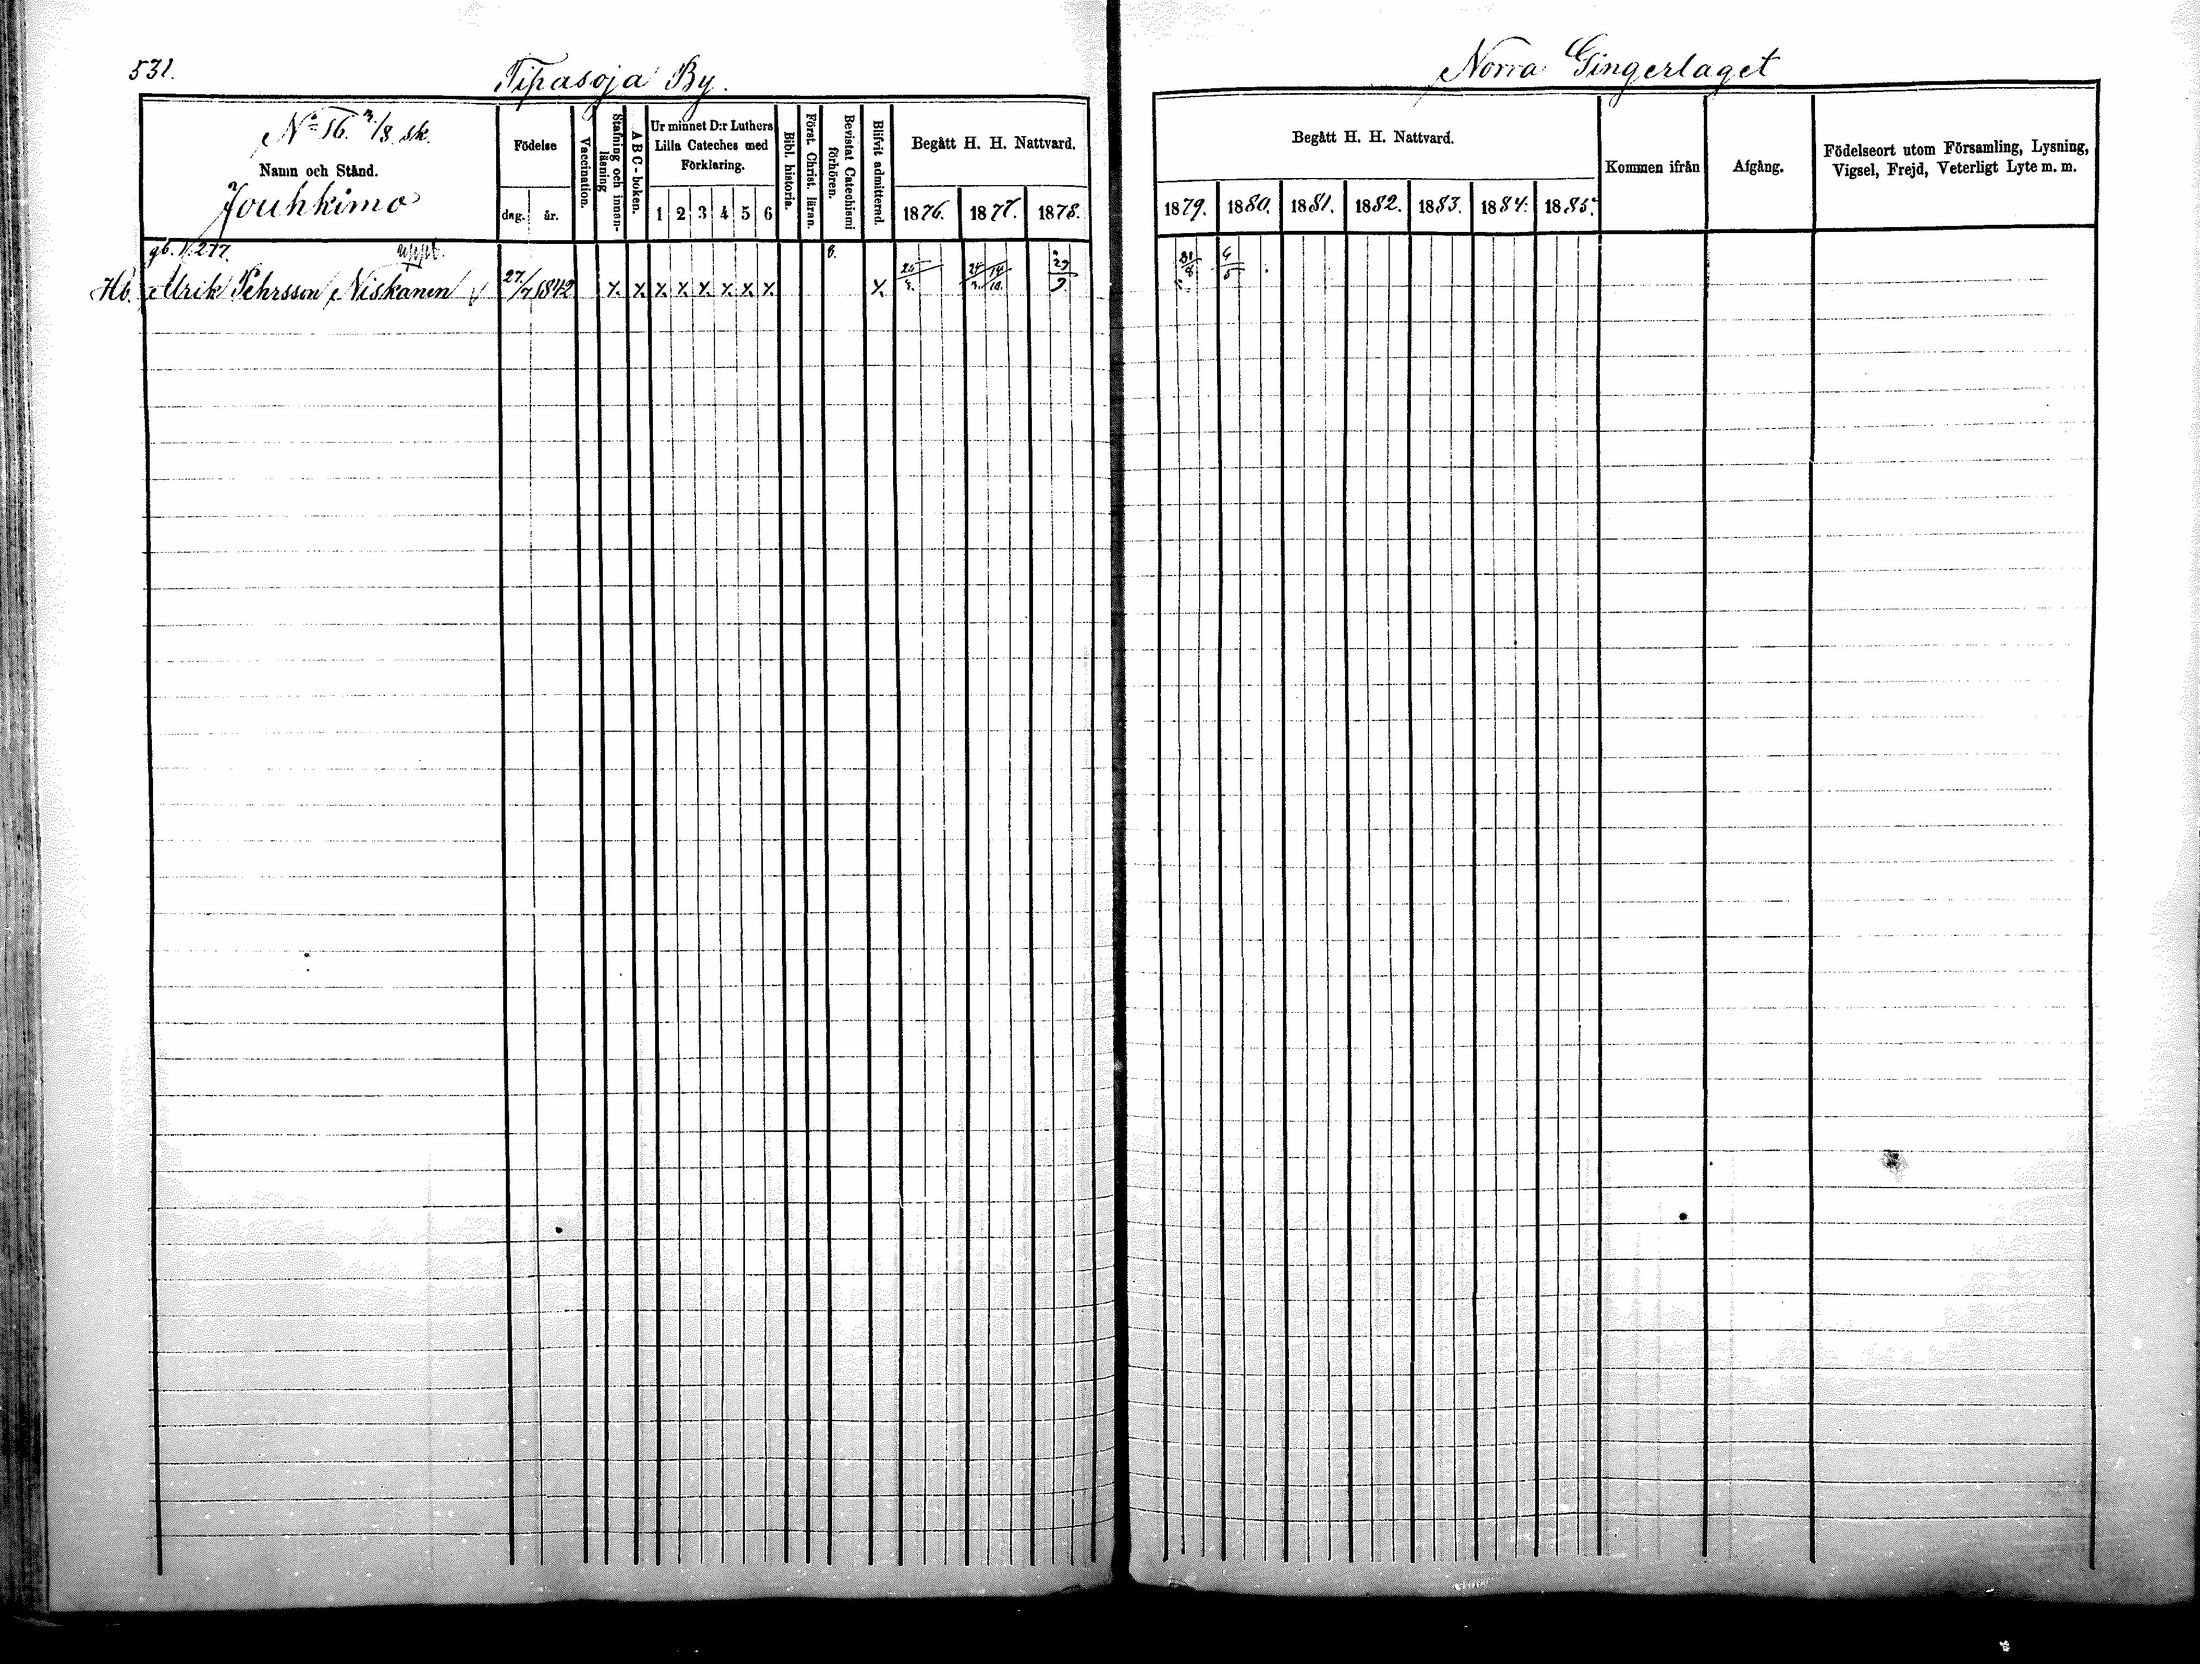 531.
Tipasoja By.
Norra Gingerlaget
No 16. /8 sk.
Namn och Stånd.
Jouhkimo
Födelse
dag. år.
Vaccination.
Stafning och innan-läsning
A B C-boken.
Ur minnet D:r Luthers
Lilla Cateches med
Förklaring.
1 2 3 4 5 6
Bibl. historia.
Först. Christ. läran.
Bevistat Catechismi förhören.
Blifvit admitterad.
Begått H. H. Nattvard.
1876. 1877. 1878.
Begått H. H. Nattvard.
1879. 1880. 1881. 1882. 1883. 1884. 1885.
Kommen ifrån
Afgång.
Födelseort utom Församling, Lysning,
Vigsel, Frejd, Veterligt Lyte m. m.
gb. N. 277.
Hb. Ulrik Pehrsson Niskanen 27/7 1842 x x x x x x x x x 29/9 31/8 4/5